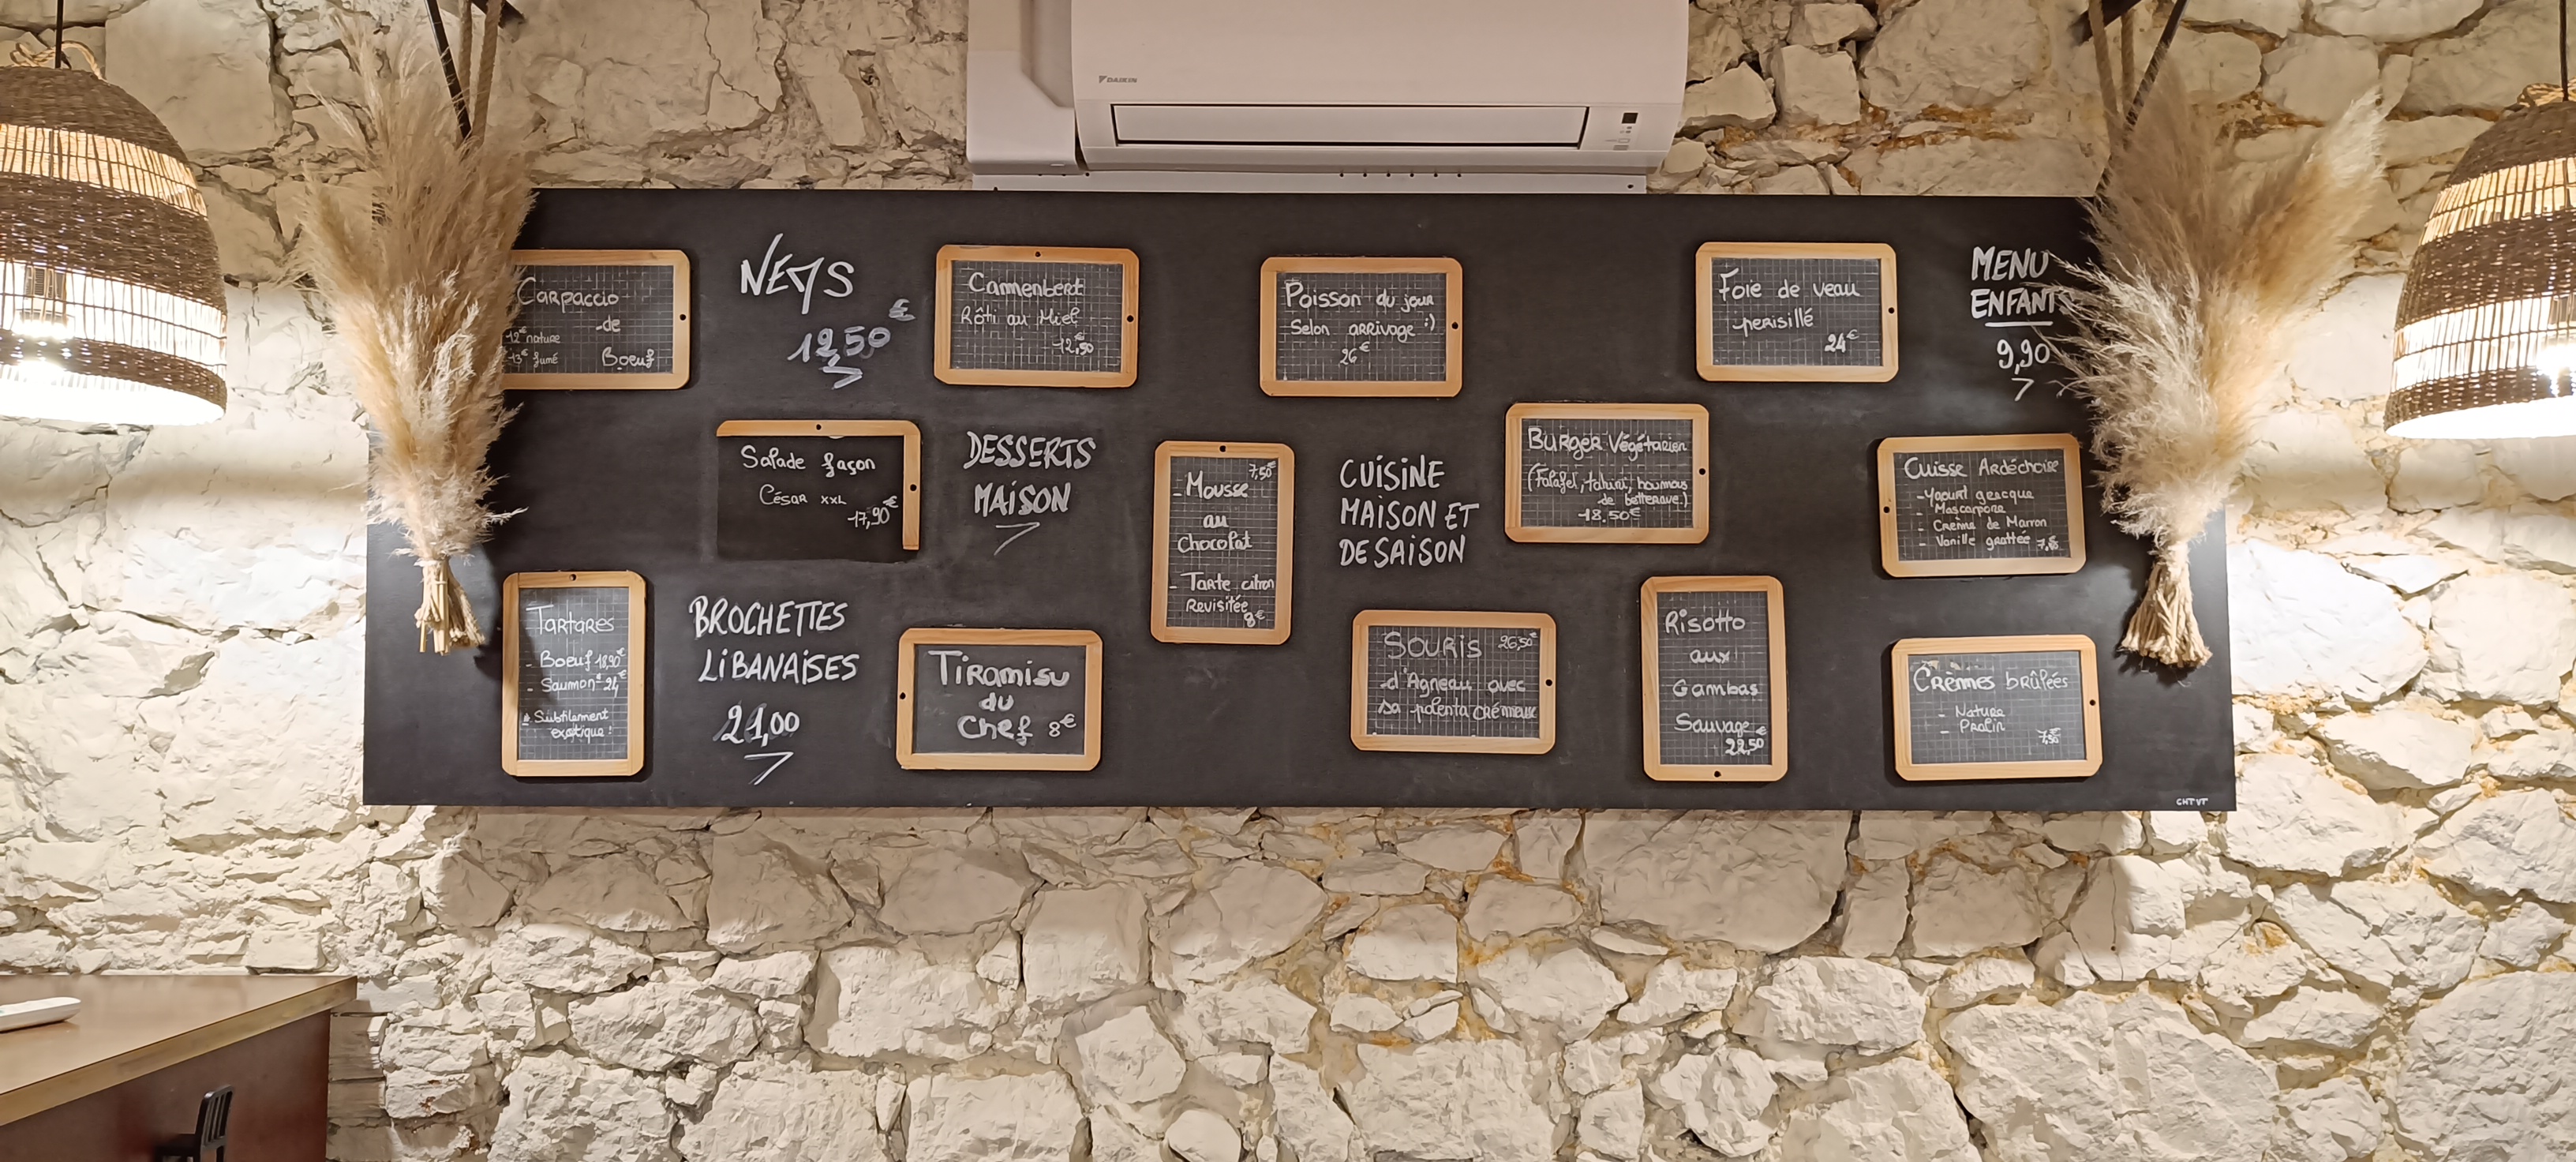 DAIKIN
Carpaccio
de
12€ nature
13€ fumé
Boeuf
NEMS
12,50€
Camembert
Rôti au Miel
12,50
Poisson du jour
Selon arrivage :)
26€
Foie de veau
persillé
24€
MENU
ENFANTS
9,90
Salade façon
César XXL
17,90€
DESSERTS
MAISON
7,50€
- Mousse
au
Chocolat
- Tarte citron
Revisitée
8€
CUISINE
MAISON ET
DE SAISON
Burger Végétarien
(Falafel, tahini, houmous
de betterave.)
18.50€
Cuisse Ardéchoise
- Yaourt grecque
- Mascarpone
- Crème de Marron
- Vanille grattée
Tartares
- Boeuf 18,90€
- Saumon* 24€
* Subtilement
exotique !
BROCHETTES
LIBANAISES
21,00
Tiramisu
du
Chef 8€
Souris 26,50€
d'Agneau avec
sa polenta crémeuse
Risotto
aux
Gambas
Sauvage
22,50€
Crèmes brûlées
- Nature
- Pralin
7,50
CHT VT